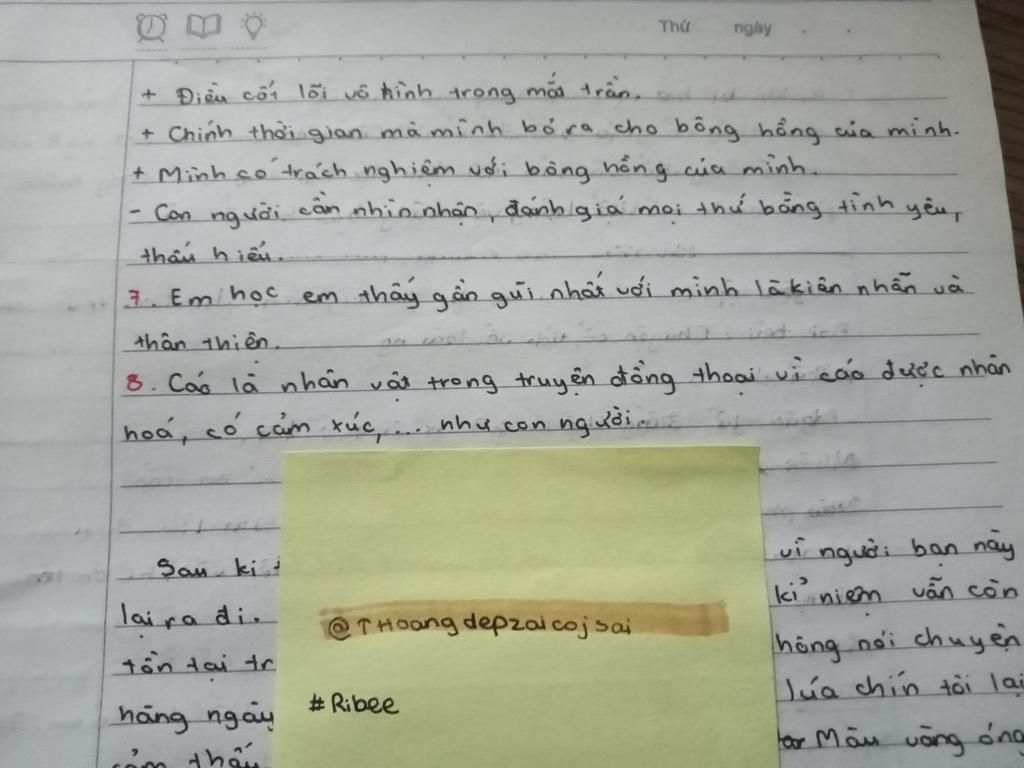 Thứ ngày . .
+ Điều cốt lõi vô hình trong mắt trần.
+ Chính thời gian mà mình bỏ ra cho bông hồng của mình.
+ Mình có trách nghiệm với bông hồng của mình.
- Con người cần nhìn nhận, đánh giá mọi thứ bằng tình yêu,
thấu hiểu.
7. Em học em thấy gần gũi nhất với mình là kiên nhẫn và
thân thiện.
8. Cáo là nhân vật trong truyện đồng thoại vì cáo được nhân
hoá, có cảm xúc,... như con người.
Sau ki vì người bạn này
lại ra đi. kỉ niệm vẫn còn
@THoangdepzaicojsai
tồn tại tr hông nói chuyện
#Ribee
hàng ngày lúa chín tôi lại
cảm thấy Màu vàng óng